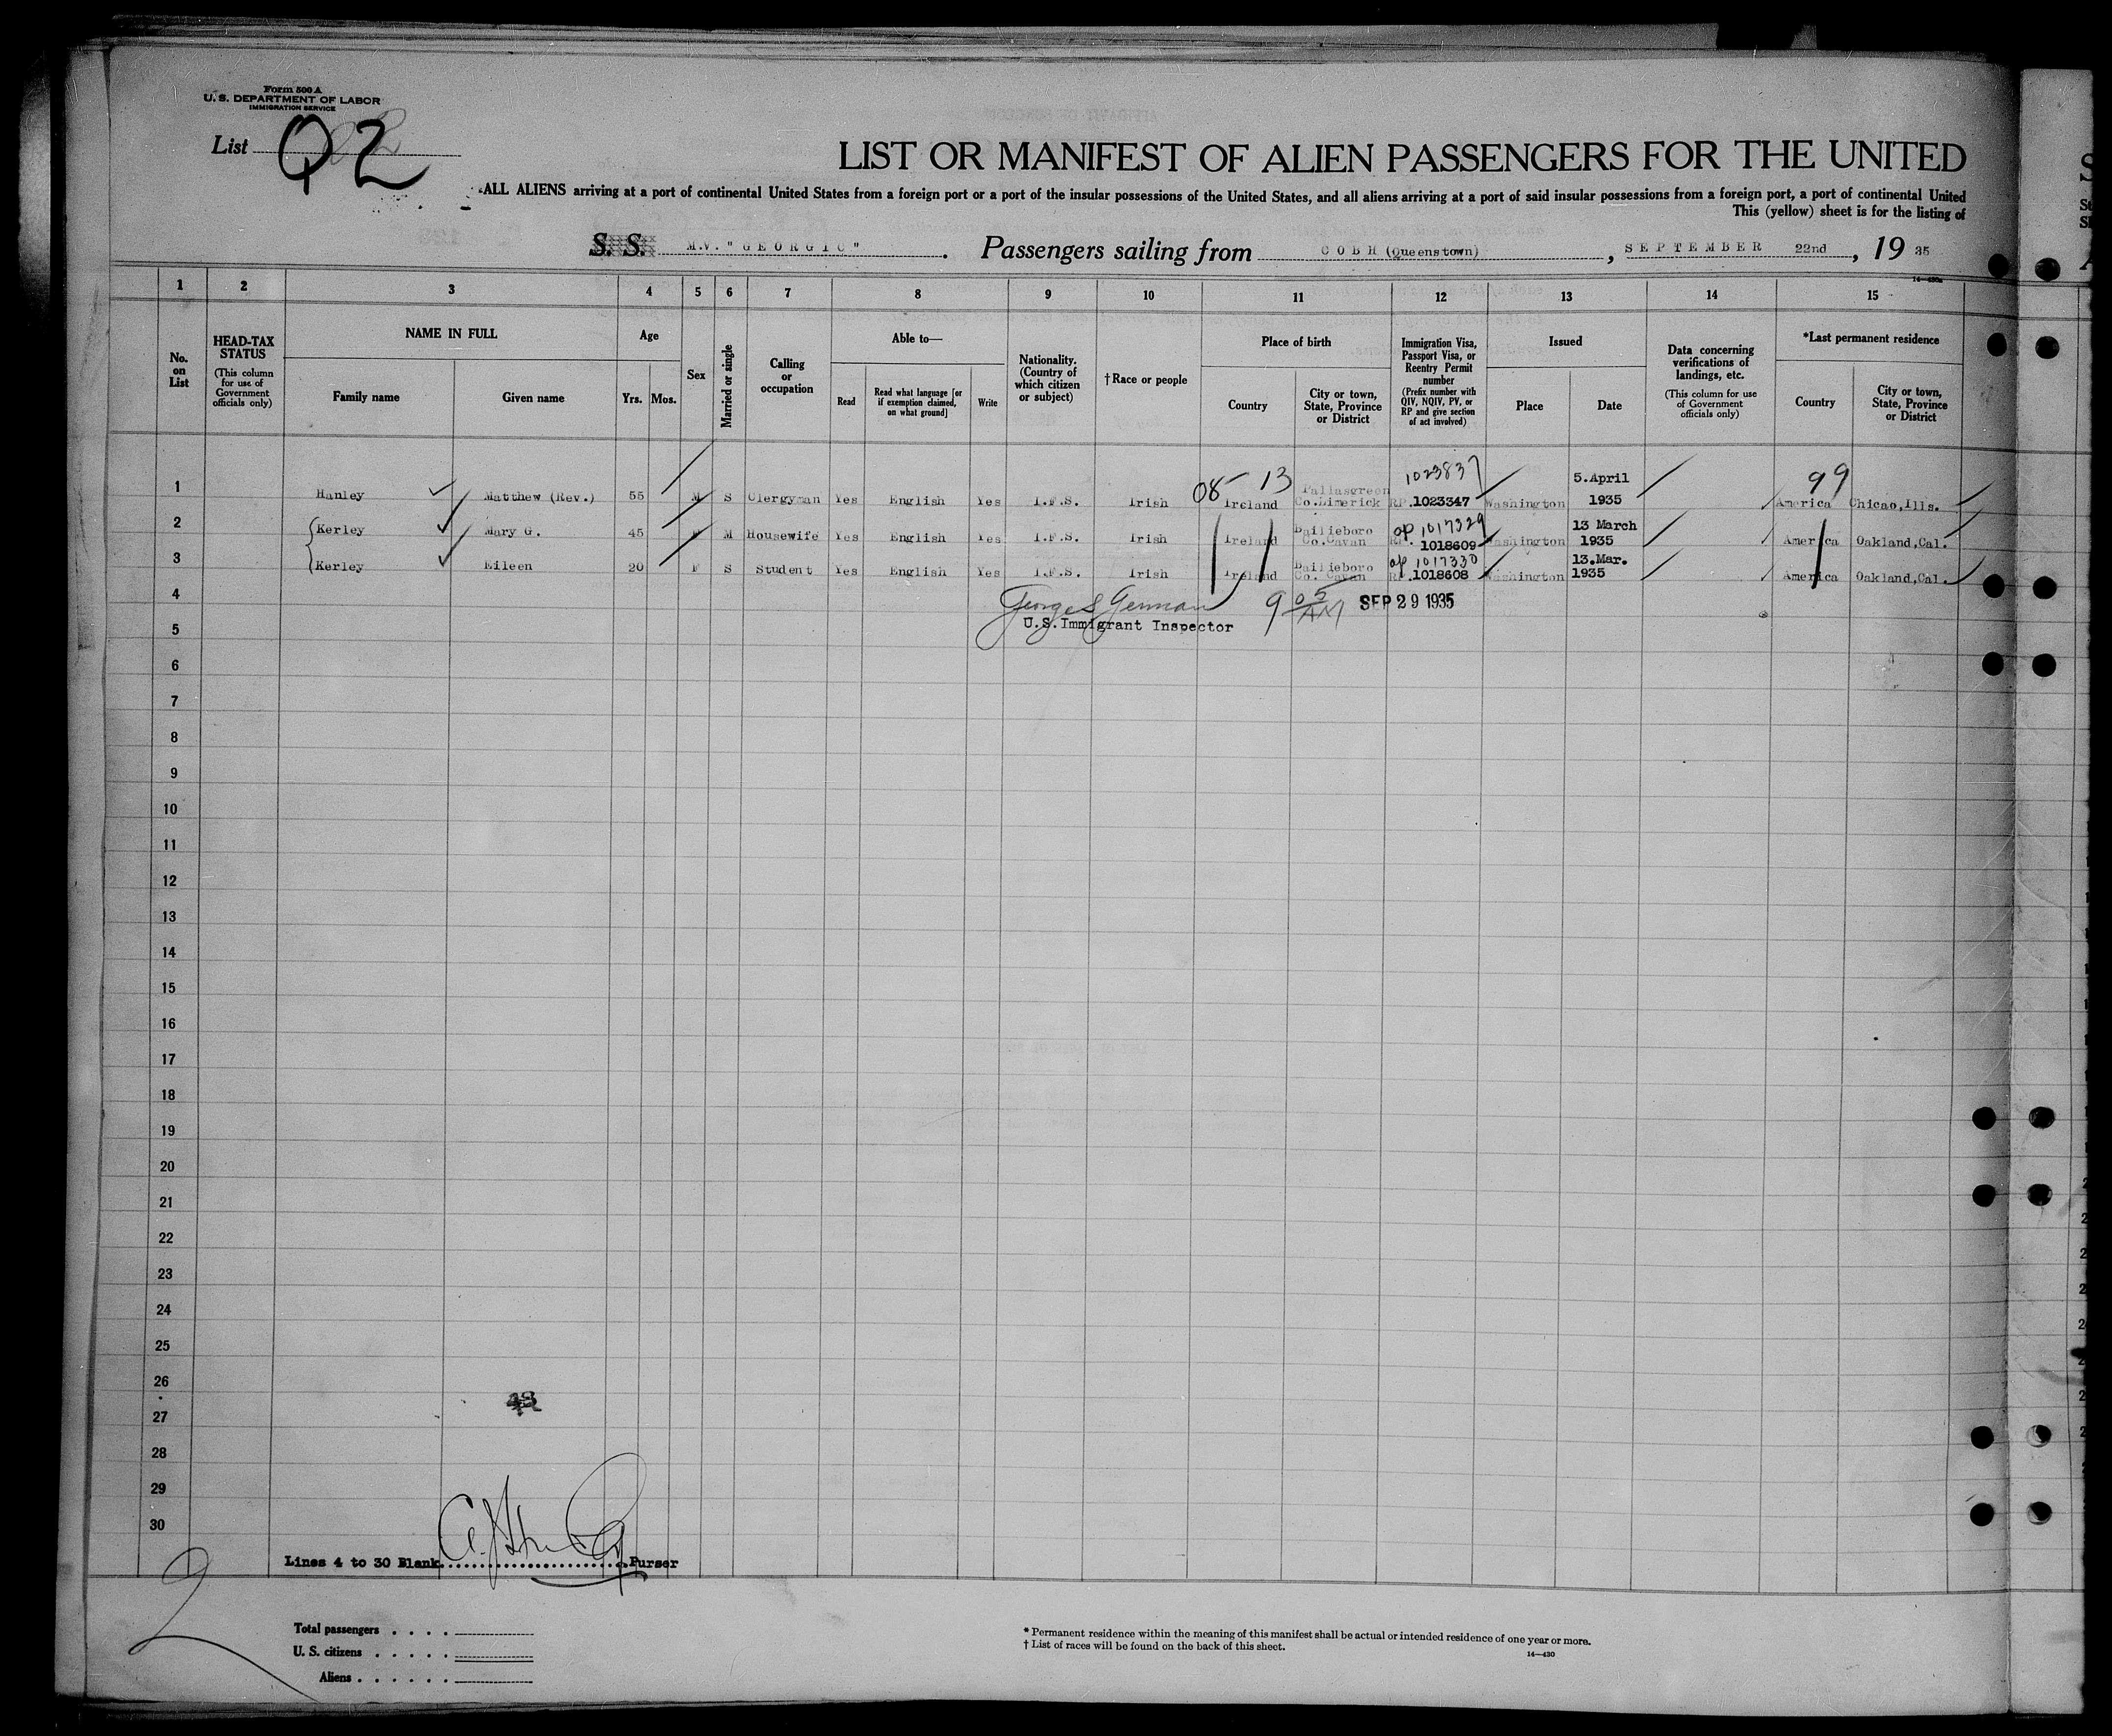 Form 500 A
U. S. DEPARTMENT OF LABOR
IMMIGRATION SERVICE
List Q2
LIST OR MANIFEST OF ALIEN PASSENGERS FOR THE UNITED
ALL ALIENS arriving at a port of continental United States from a foreign port or a port of the insular possessions of the United States, and all aliens arriving at a port of said insular possessions from a foreign port, a port of continental United
This (yellow) sheet is for the listing of
S. S. M.V. "GEORGIC". Passengers sailing from COBH (Queenstown), SEPTEMBER 22nd, 19 35
14—430a
1 2 3 4 5 6 7 8 9 10 11 12 13 14 15
No. on List
HEAD-TAX STATUS (This column for use of Government officials only)
NAME IN FULL Family name Given name
Age Yrs. Mos.
Sex
Married or single
Calling or occupation
Able to— Read Read what language [or if exemption claimed, on what ground] Write
Nationality. (Country of which citizen or subject)
†Race or people
Place of birth Country City or town, State, Province or District
Immigration Visa, Passport Visa, or Reentry Permit number (Prefix number with QIV, NQIV, PV, or RP and give section of act involved)
Issued Place Date
Data concerning verifications of landings, etc. (This column for use of Government officials only)
*Last permanent residence Country City or town, State, Province or District
08- 13 1023837 5.April 99
1 Hanley Matthew (Rev.) 55 M S Clergyman Yes English Yes I.F.S. Irish Ireland Pallasgreen Co.Limerick RP.1023347 Washington 1935 America Chicao,Ills.
op 1017329 13 March
2 Kerley Mary G. 45 F M Housewife Yes English Yes I.F.S. Irish Ireland Bailieboro Co.Cavan RP. 1018609 Washington 1935 America Oakland,Cal.
op 1017330 13.Mar.
3 Kerley Eileen 20 F S Student Yes English Yes I.F.S. Irish Ireland Bailieboro Co. Cavan RP.1018608 Washington 1935 America Oakland,Cal.
4 George S German 9 05 AM SEP 29 1935
U.S.Immigrant Inspector
5
6
7
8
9
10
11
12
13
14
15
16
17
18
19
20
21
22
23
24
25
26
27
28
29
30
Lines 4 to 30 Blank Purser
2
Total passengers
U. S. citizens
Aliens
* Permanent residence within the meaning of this manifest shall be actual or intended residence of one year or more.
† List of races will be found on the back of this sheet.
14—430